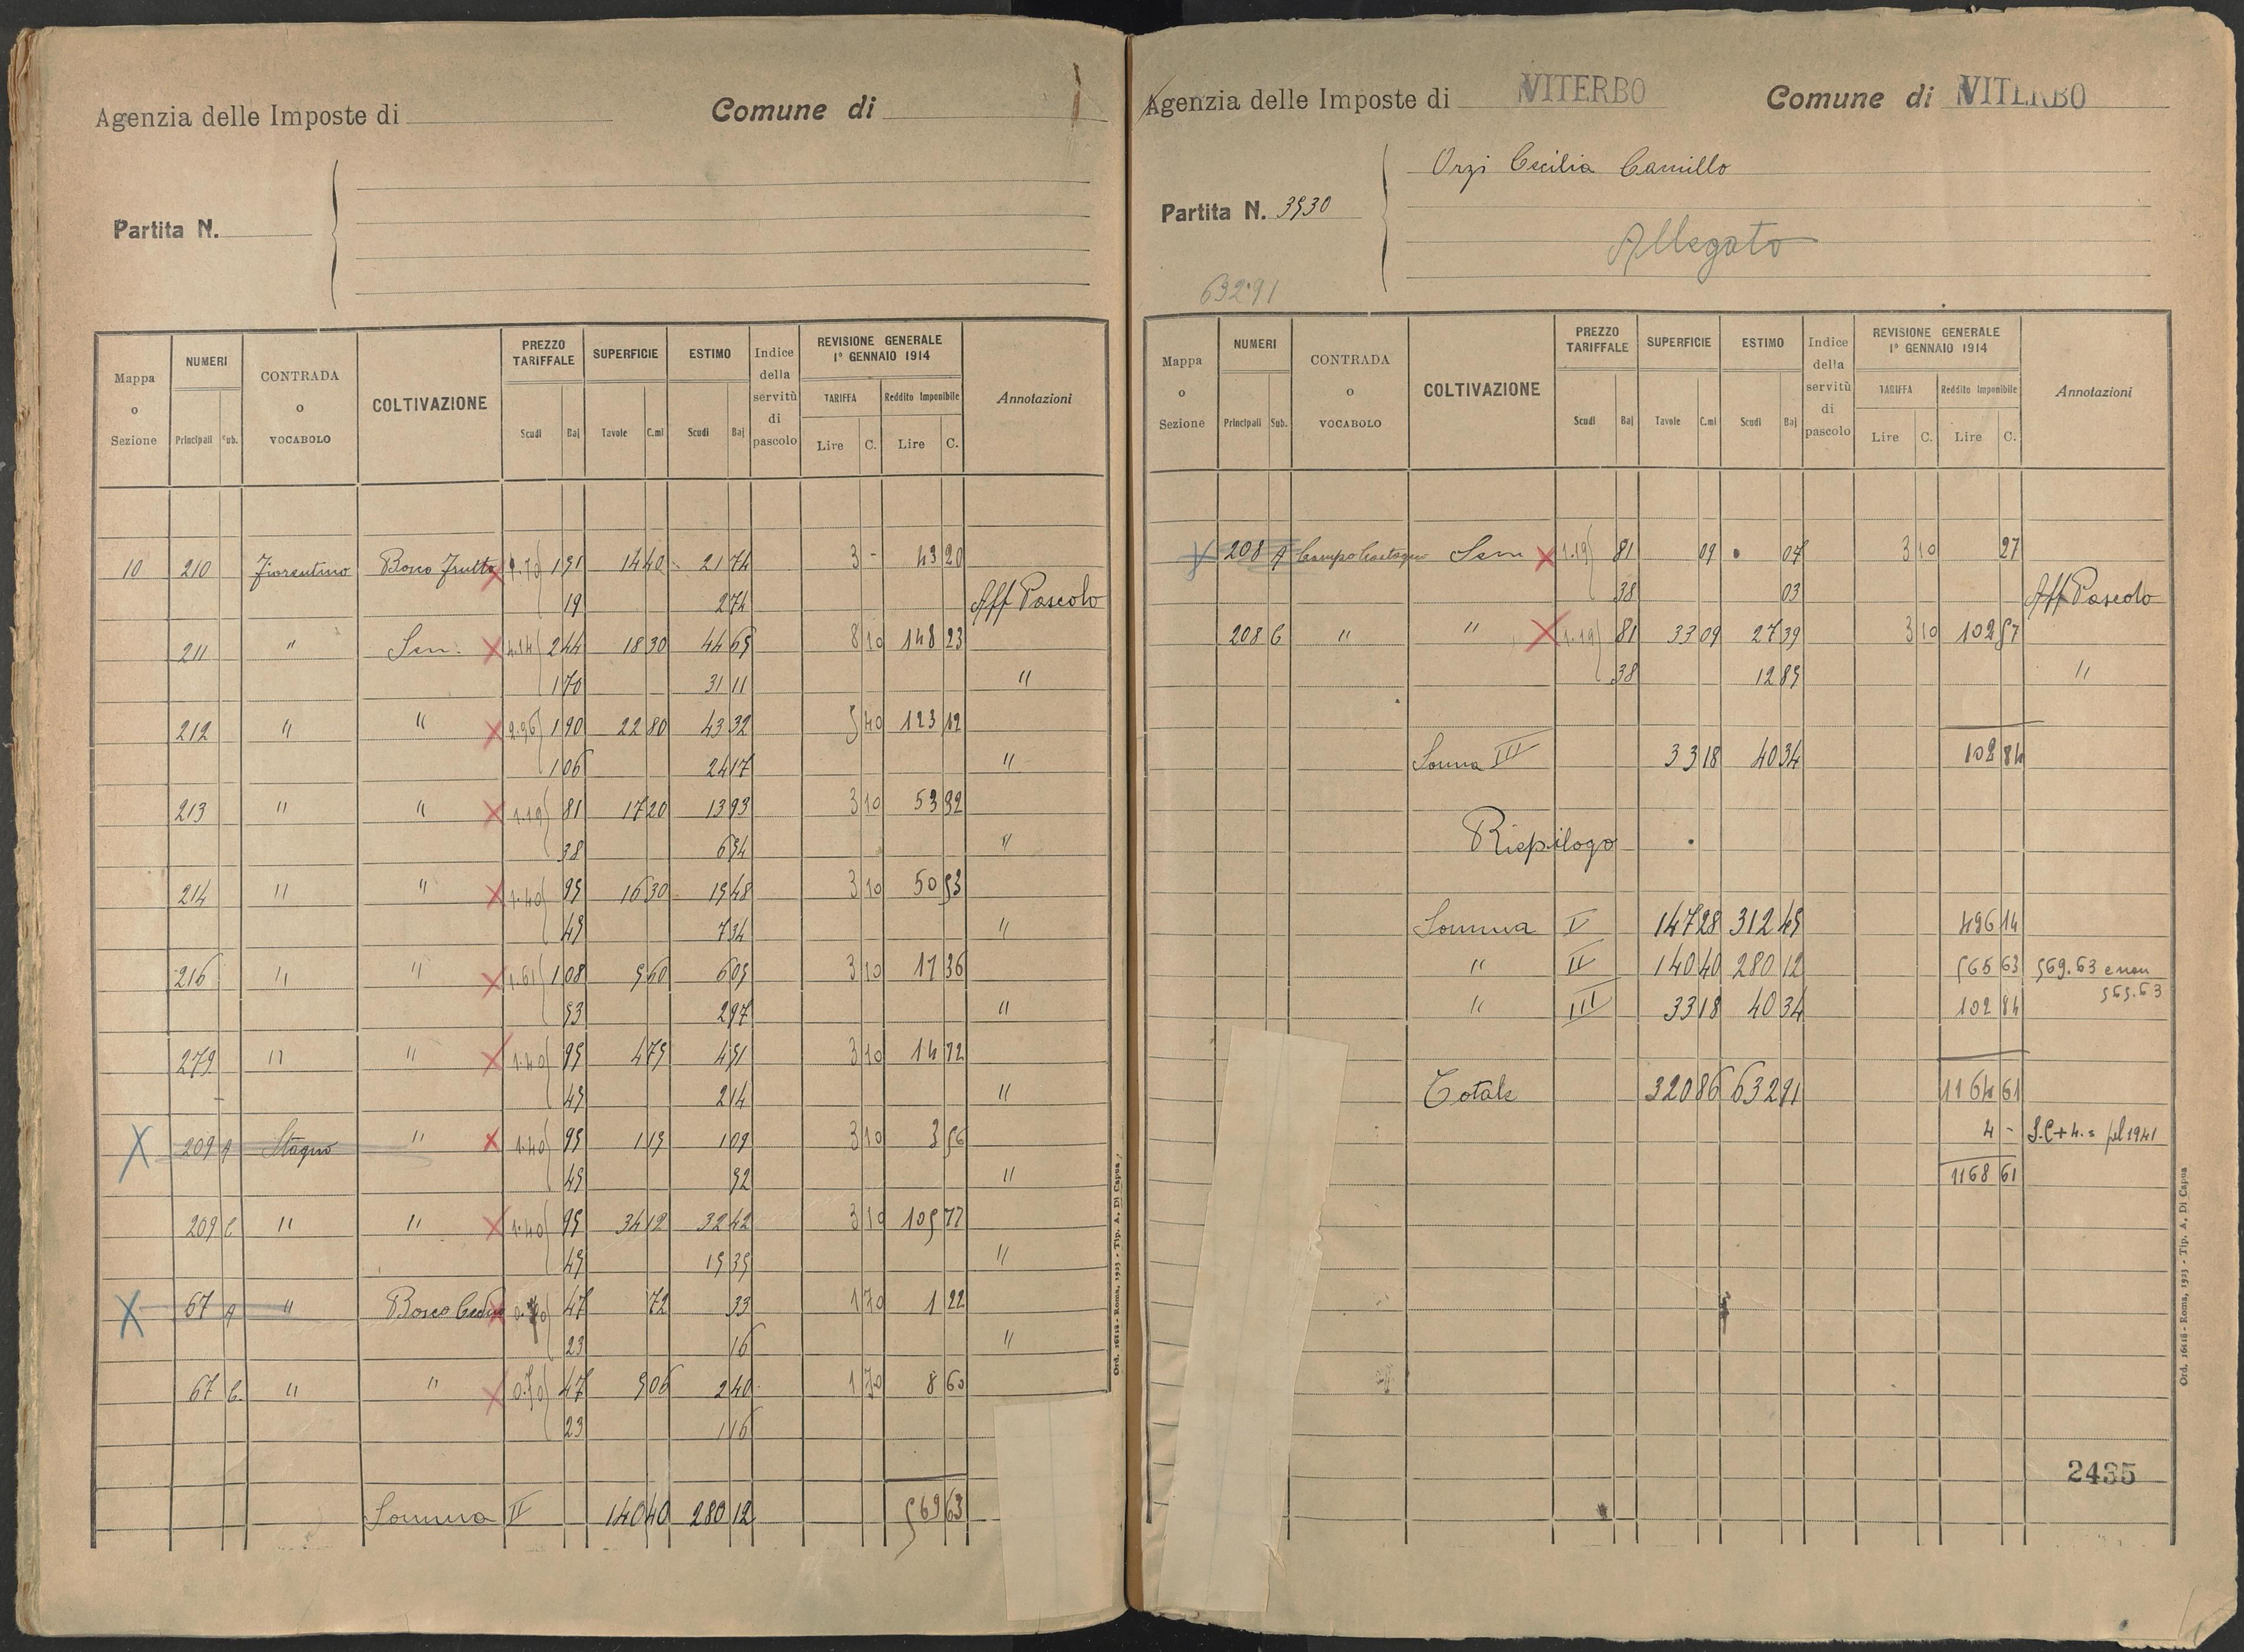 Agenzia delle Imposte di
Comune di
Partita N.
Mappa o Sezione | NUMERI Principali Sub. | CONTRADA o VOCABOLO | COLTIVAZIONE | PREZZO TARIFFALE Scudi Baj | SUPERFICIE Tavole C.mi | ESTIMO Scudi Baj | Indice della servitù di pascolo | REVISIONE GENERALE 1° GENNAIO 1914 TARIFFA Lire C. Reddito Imponibile Lire C. | Annotazioni
10 210 Fiorentino Bosco Frutto 1 51 14 40 21 74 3 - 43 20
19 2 74 Aff Pascolo
211 " Sem. 4.14 2 44 18 30 44 65 8 10 148 23
1 70 31 11 "
212 " " 2.96 1 90 22 80 43 32 5 40 123 12
1 06 24 17 "
213 " " 1.19 81 17 20 13 93 3 10 53 32
38 6 54 "
214 " " 1.40 95 16 30 15 48 3 10 50 53
45 7 34 "
216 " " 1.61 1 08 5 60 6 05 3 10 17 36
53 2 97 "
279 " " 1.40 95 4 75 4 51 3 10 14 72
45 2 14 "
X 209 A Stagno " 1.40 95 1 15 1 09 3 10 3 56
45 52 "
209 C " " 1.40 95 34 12 32 42 3 10 105 77
45 15 35 "
X 67 A " Bosco Ceduo 47 72 33 1 70 1 22
23 16 "
67 C. " " 0.70 47 5 06 2 40 1 70 8 60
23 1 16
Somma II 140 40 280 12 569 63
Ord. 16118 - Roma, 1923 - Tip. A. Di Capua
Agenzia delle Imposte di VITERBO
Comune di VITERBO
Orzi Cecilia Camillo
Partita N. 3530
Allegato
63291
Mappa o Sezione | NUMERI Principali Sub. | CONTRADA o VOCABOLO | COLTIVAZIONE | PREZZO TARIFFALE Scudi Baj | SUPERFICIE Tavole C.mi | ESTIMO Scudi Baj | Indice della servitù di pascolo | REVISIONE GENERALE 1° GENNAIO 1914 TARIFFA Lire C. Reddito Imponibile Lire C. | Annotazioni
X 208 A Campo Sem 1.19 81 09 07 3 10 27
38 03 Aff Pascolo
208 C " " 1.19 81 33 09 27 39 3 10 102 57
38 12 85 "
Somma III 33 18 40 34 102 84
Riepilogo
Somma I 147 28 312 45 496 14
" II 140 40 280 12 565 63 569.63 e non
565.63
" III 33 18 40 34 102 84
Totale 320 86 632 91 1164 61
4 - S.C + 4. = pel 1941
1168 61
2435
Ord. 16118 - Roma, 1923 - Tip. A. Di Capua